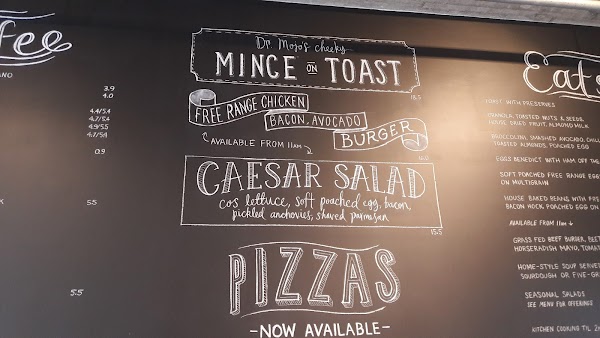 ffee
ANO
3.9
4.0
4.4/5.4
4.7/5.4
4.9/5.5
4.7/5.4
0.9
5.5
5.5
Dr Mojo's cheeky
MINCE ON TOAST
FREE RANGE CHICKEN
BACON, AVOCADO
BURGER
AVAILABLE FROM 11am
CAESAR SALAD
cos lettuce, soft poached egg, bacon,
pickled anchovies, shaved parmesan
15.5
PIZZAS
-NOW AVAILABLE-
Eats
TOAST WITH PRESERVES
GRANOLA, TOASTED NUTS & SEEDS,
HOUSE DRIED FRUIT, ALMOND MILK
BROCCOLINI, SMASHED AVOCADO, CHILL
TOASTED ALMONDS, POACHED EGG
EGGS BENEDICT WITH HAM OFF THE
SOFT POACHED FREE RANGE EGG
ON MULTIGRAIN
HOUSE BAKED BEANS WITH PRE
BACON HOCK, POACHED EGG ON
AVAILABLE FROM 11am
GRASS FED BEEF BURGER, BEET
HORSERADISH MAYO, TOMAT
HOME-STYLE SOUP SERVED
SOURDOUGH OR FIVE-GR
SEASONAL SALADS
SEE MENU FOR OFFERINGS
KITCHEN COOKING TIL 2